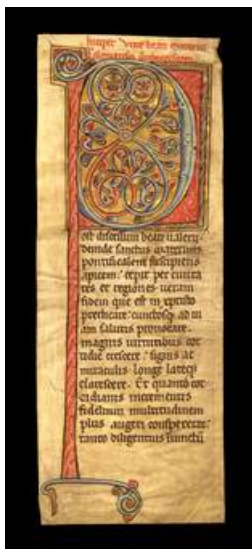 Vita beati
ost discessum beati ualerii.
deinde sanctus maternus
pontificalem suscipiens
apicem. cepit per ciuita
tes et regiones ueram
fidem que est in xpisto
predicare. cunctosq; ad ui
am salutis prouocare.
magnis uirtutibus cot
tidie crescere. signis ac
miraculis longe lateq;
clarescere. Et quanto cot
cidianis incrementis
fidelium multitudinem
plus augeri conspiceret.
tanto diligentius